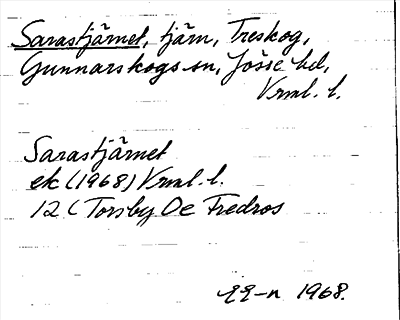 Sarastjärnet, tjärn, Treskog,
Gunnarskogs sn, Jösse hd,
Vrml. l.
Sarastjärnet
ek (1968) Vrml. l.
12 C Torsby Oe Fredros
1968.